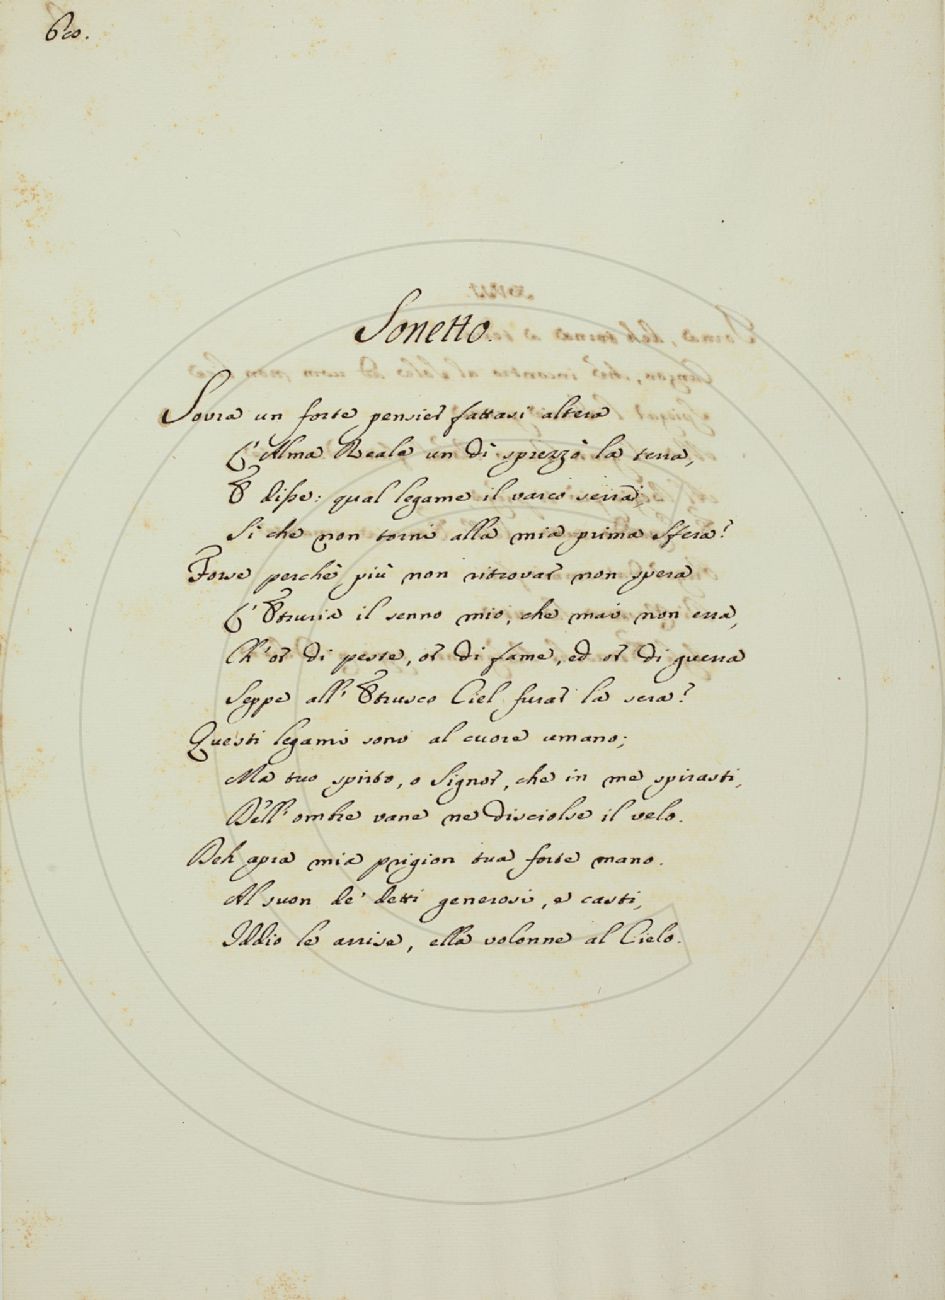 60.
Sonetto.
Sovra un forte pensier fattasi altera
L'Alma Reale un dì sprezzò la terra,
E disse: qual legame il varco serra,
Si che non torni alla mia prima sfera?
Forse perchè più non ritrovar non spera
L'Etruria il senno mio, che mai non erra,
Ch'or di peste, or di fame, ed or di guerra
Seppe all'Etrusco Ciel furar la sera?
Questi legami sono al cuore umano;
Ma tuo spirto, o Signor, che in me spirasti,
Dell'ombre vane ne disciolse il velo.
Deh apra mia prigion tua forte mano.
Al suon de' detti generosi, e casti,
Iddio le arrise, ella volonne al Cielo.